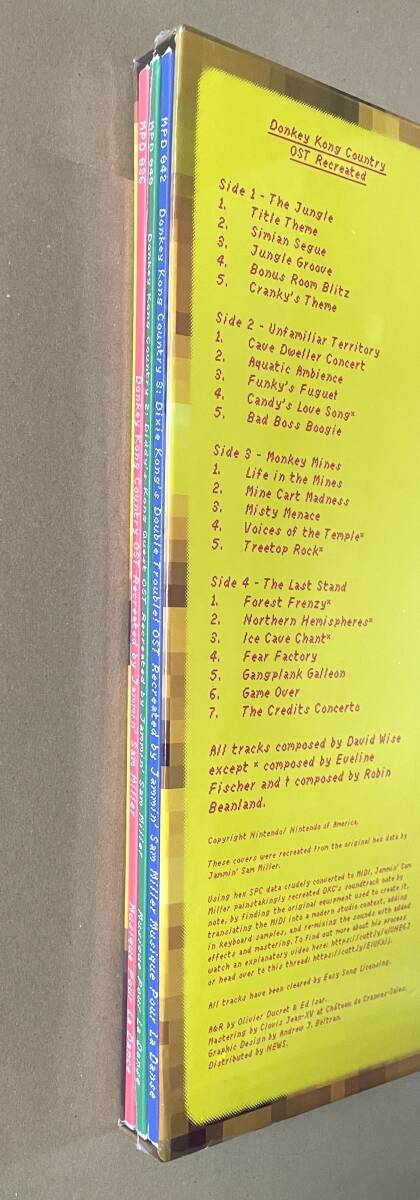 MPD 042 Donkey Kong Country 3: Dixie Kong's Double Trouble! OST Recreated by Jammin' Sam Miller Musique Pour La Danse
MPD 040 Donkey Kong Country 2: Diddy's Kong Quest OST Recreated by Jammin' Sam Miller Musique Pour La Danse
MPD 036 Donkey Kong Country OST Recreated by Jammin' Sam Miller Musique Pour La Danse
Donkey Kong Country
OST Recreated
Side 1 - The Jungle
1. Title Theme
2. Simian Segue
3. Jungle Groove
4. Bonus Room Blitz
5. Cranky's Theme
Side 2 - Unfamiliar Territory
1. Cave Dweller Concert
2. Aquatic Ambience
3. Funky's Fugue†
4. Candy's Love Song*
5. Bad Boss Boogie
Side 3 - Monkey Mines
1. Life in the Mines
2. Mine Cart Madness
3. Misty Menace
4. Voices of the Temple*
5. Treetop Rock*
Side 4 - The Last Stand
1. Forest Frenzy*
2. Northern Hemispheres*
3. Ice Cave Chant*
4. Fear Factory
5. Gangplank Galleon
6. Game Over
7. The Credits Concerto
All tracks composed by David Wise
except * composed by Eveline
Fischer and † composed by Robin
Beanland.
Copyright Nintendo/ Nintendo of America.
These covers were recreated from the original hex data by
Jammin' Sam Miller.
Using hex SPC data crudely converted to MIDI, Jammin' Sam
Miller painstakingly recreated DKC's soundtrack note by
note, by finding the original equipment used to create it,
translating the MIDI into a modern studio context, adding
in keyboard samples, and re-mixing the sounds with added
effects and mastering. To find out more about his process
watch an explanatory video here:
or head over to this thread:
All tracks have been cleared by Easy Song Licensing.
A&R by Olivier Ducret & Ed Isar.
Mastering by Clovis Jean-XV at Château de Crannes-Salen.
Graphic Design by Andrew J. Beltran.
Distributed by NEWS.